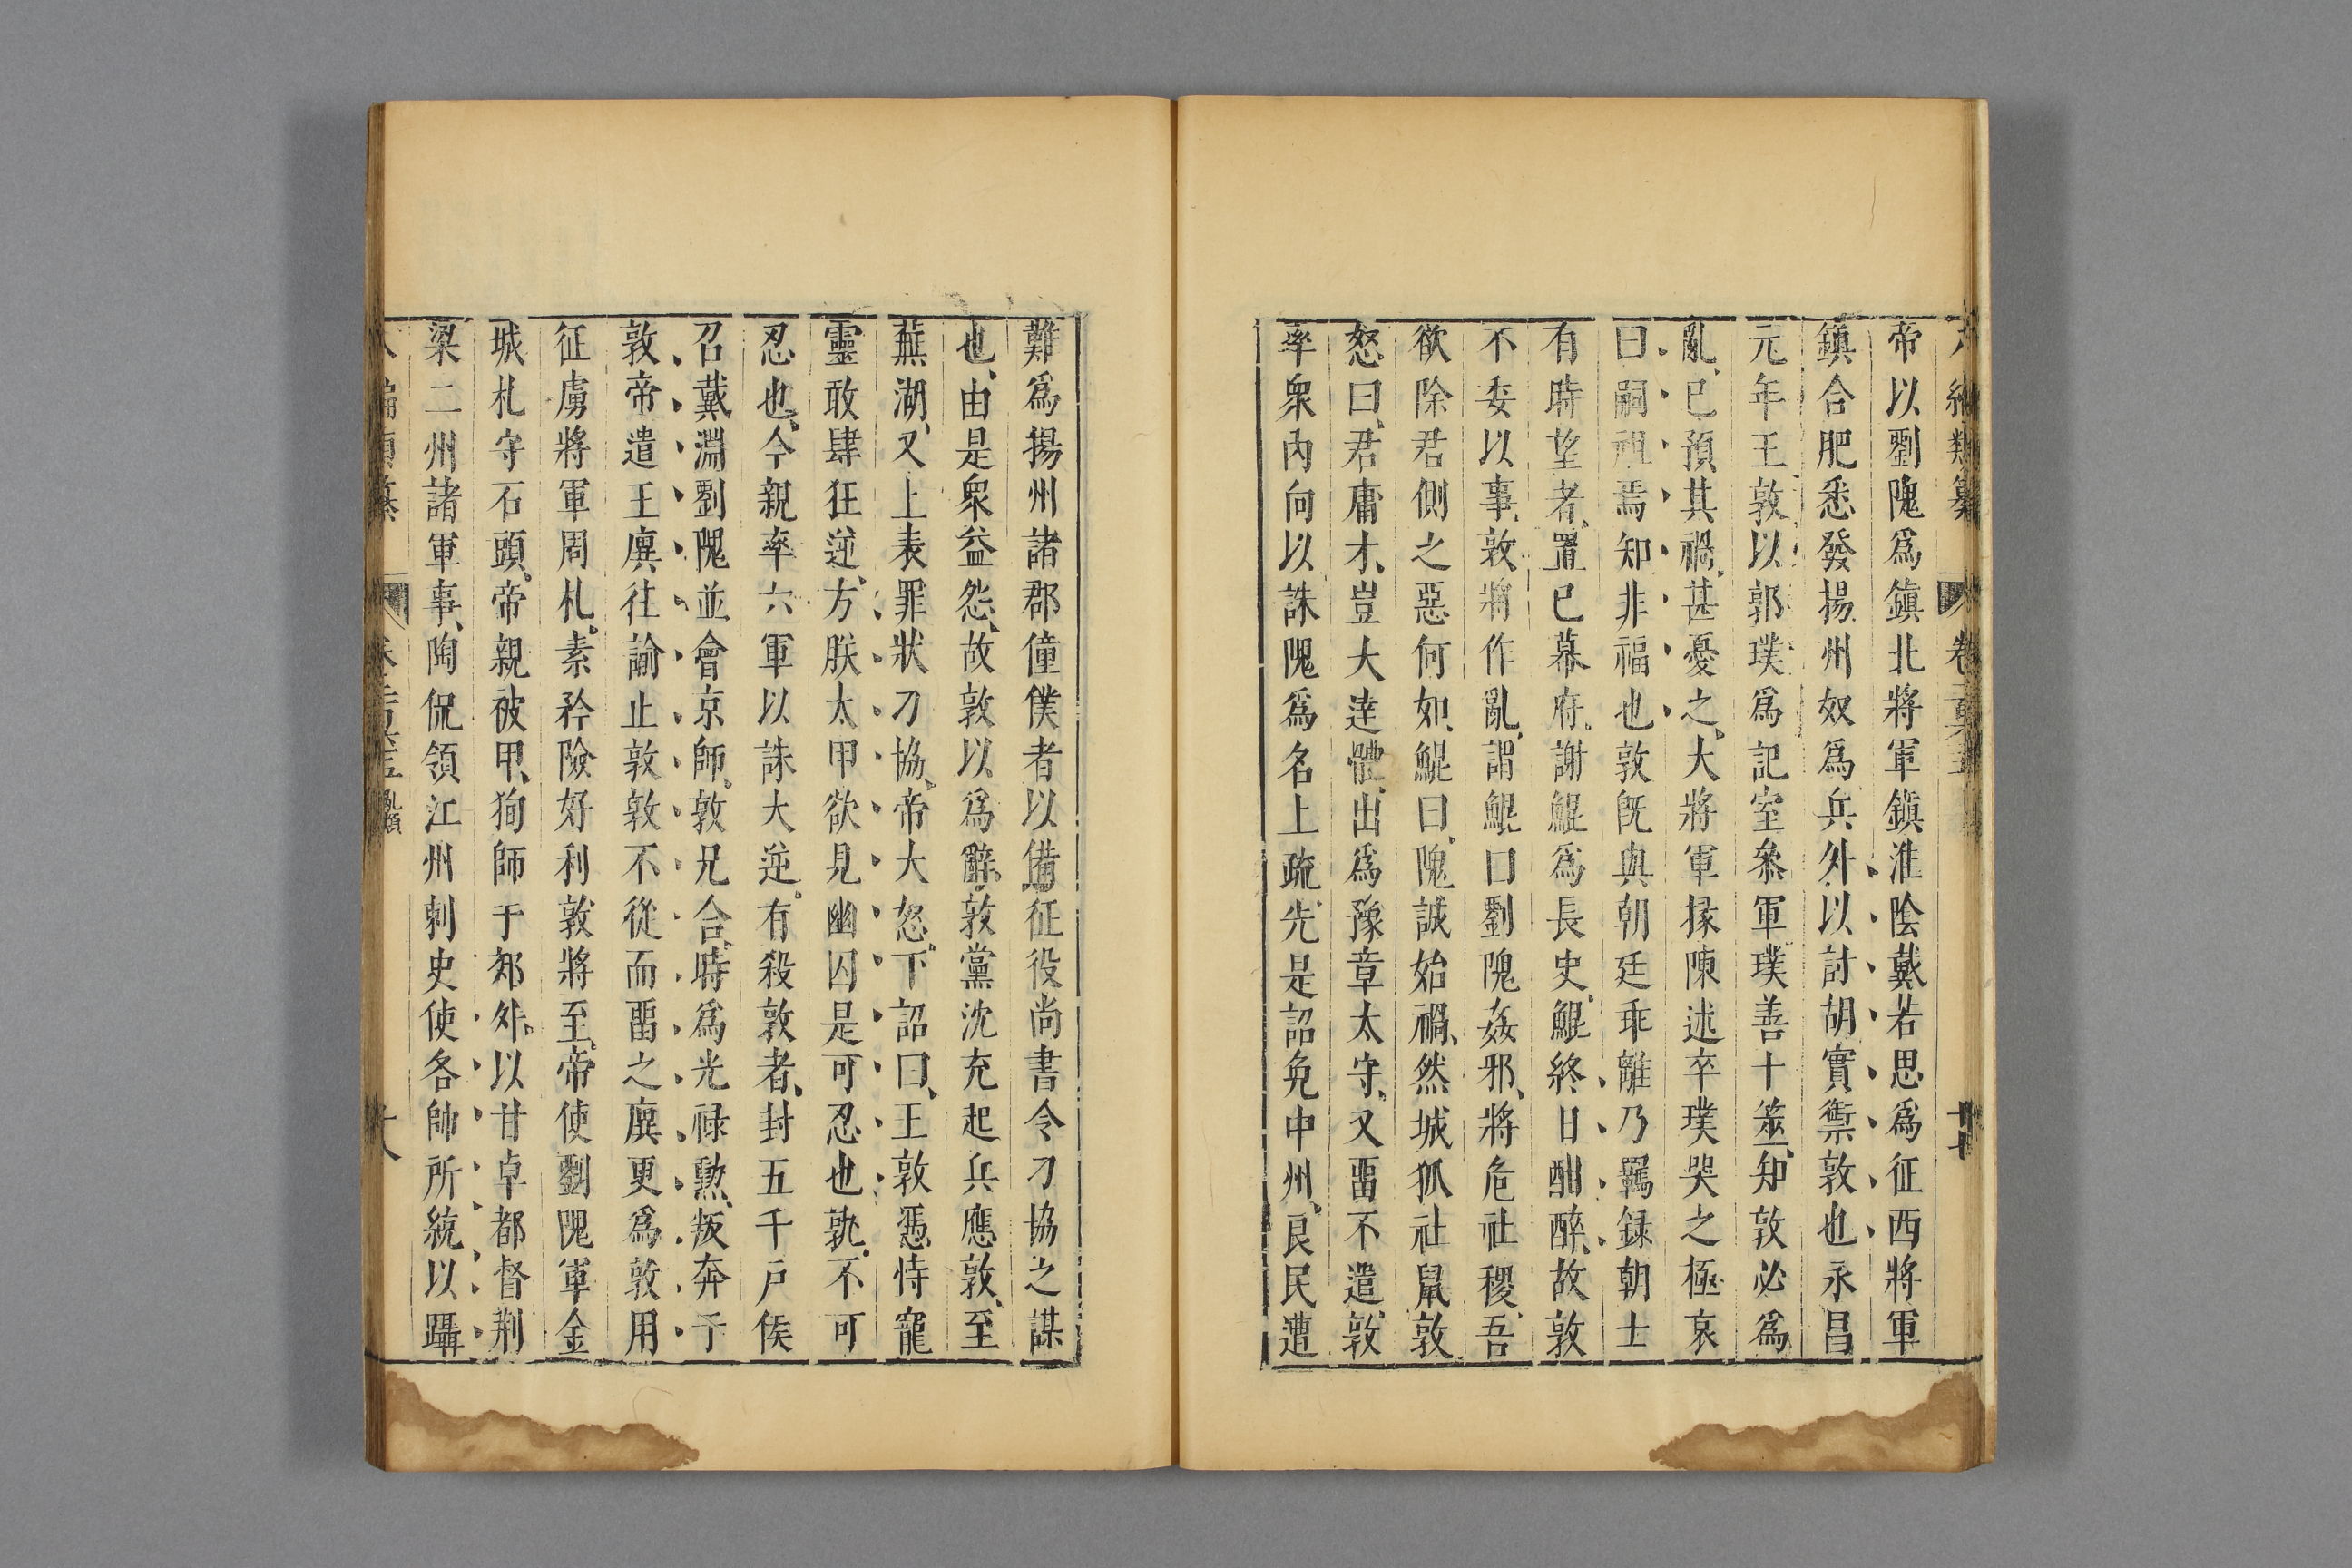 帝以劉隗爲鎮北將軍鎮淮陰戴若思爲征西將軍
鎮合肥悉發揚州奴爲兵外以討胡實禦敦也永昌
元年王敦以郭璞爲記室參軍璞善卜筮、知敦必爲
亂、已預其禍、甚憂之、大將軍掾陳述卒璞哭之極哀
曰嗣祖焉知非福也敦既與朝廷乖離乃羈録朝士
有時望者、置已幕府。謝鯤爲長史、鯤終日酣醉、故敦
不委以事、敦將作亂、謂鯤曰劉隗姦邪、將危社稷、吾
欲除君側之惡何如、鯤曰、隗誠始禍、然城狐社鼠敦
怒、曰、君庸才、豈大達體、出爲豫章太守、又畱不遣、敦
率衆內向以誅隗爲名上疏、先是詔免中州、良民遭
難爲揚州諸郡僮僕者以備征役尚書令刁協之謀
也、由是衆益怨、故敦以爲辭。敦黨沈充起兵應敦、至
蕪湖、又上表罪狀刁協、帝大怒、下詔曰、王敦憑恃寵
靈敢肆狂逆、方朕太甲欲見幽囚是可忍也孰、不可
忍也、今親率六軍以誅大逆。有殺敦者、封五千戶侯
召戴淵劉隗並會京師。敦兄含、時爲光禄勲、叛奔于
敦帝遣王廙往諭止敦敦不從而畱之廙更爲敦用
征虜將軍周札、素矜險好利敦將至、帝使劉隗軍金
城札守石頭、帝親被甲、狥師于郊外。以甘卓都督荆
梁二州諸軍事、陶侃領江州刺史使各帥所統以躡